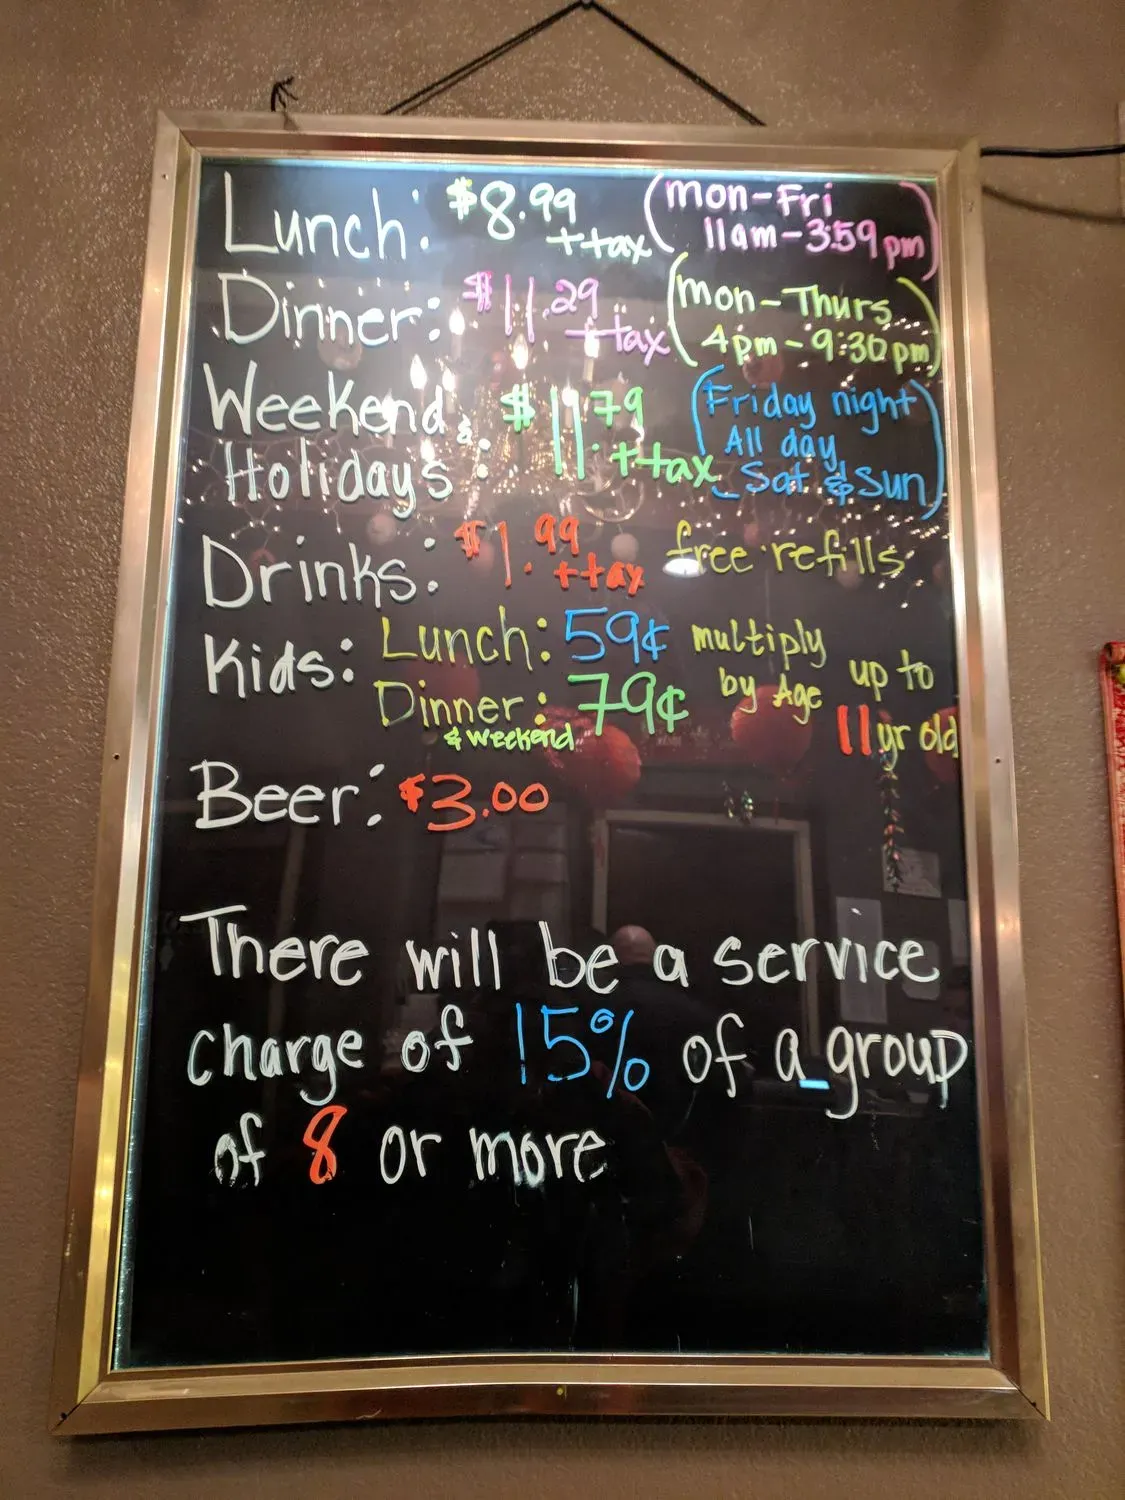 Lunch: $8.99 + tax (mon-Fri
11am-3:59pm)
Dinner: $11.29 + tax (mon-Thurs
4pm-9:30pm)
Weekend & Holidays: $11.79 + tax (Friday night
All day
Sat & Sun)
Drinks: $1.99 + tax free refills
Kids: Lunch: 59¢ multiply by Age up to 11yr old
Dinner: 79¢
& Weekend
Beer: $3.00
There will be a service
charge of 15% of a group
of 8 or more